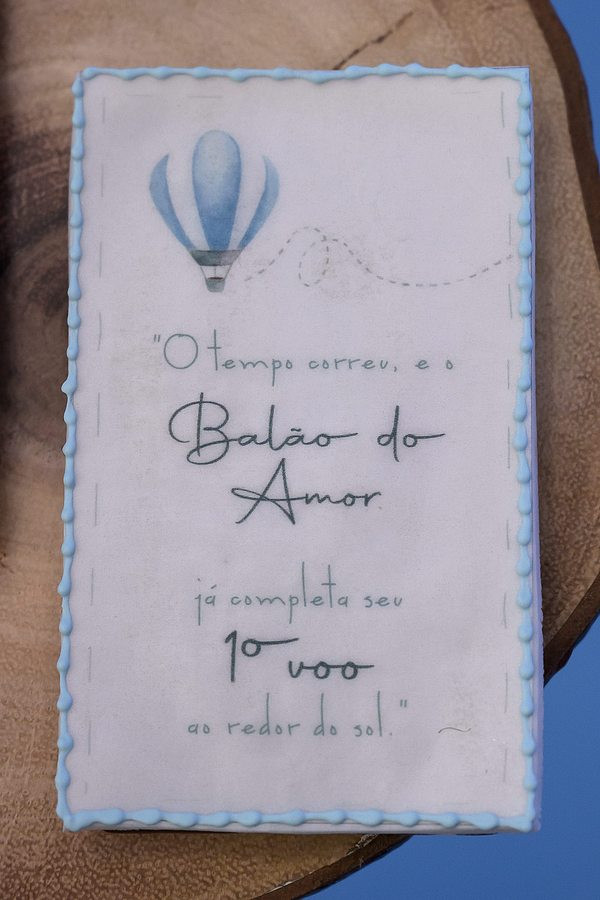 "O tempo correu, e o
Balão do
Amor
já completa seu
1º voo
ao redor do sol."